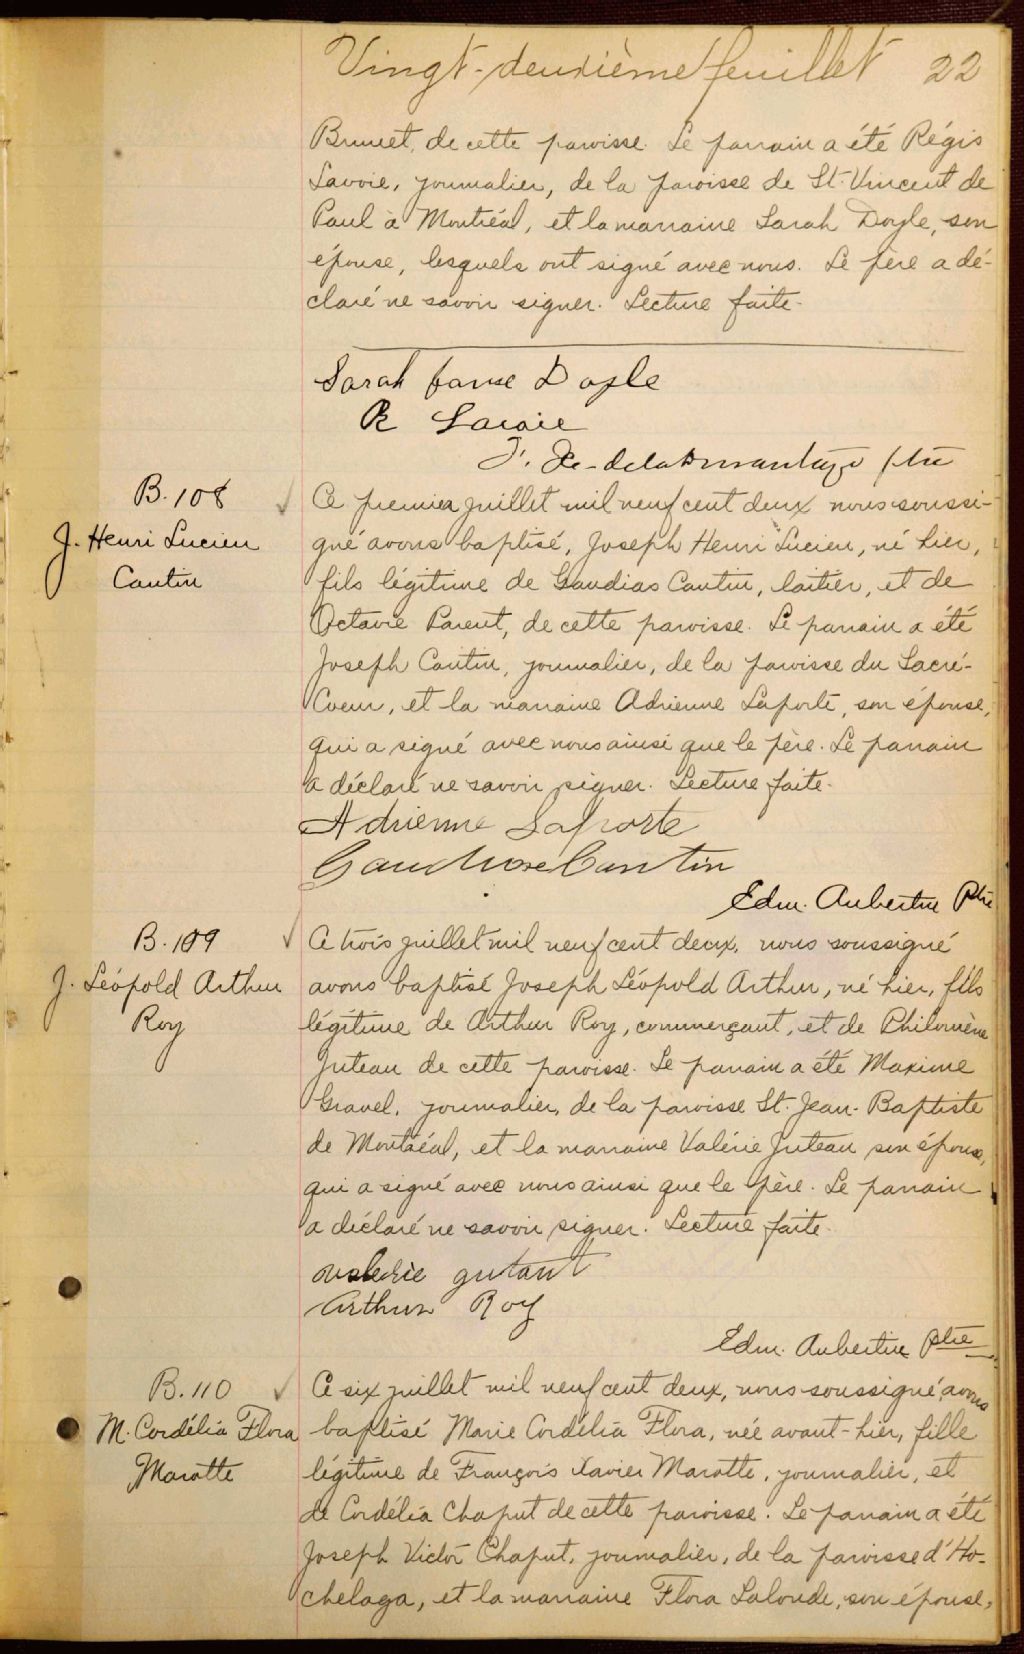 Vingt-deuxième feuillet 22
Brunet, de cette paroisse. Le parrain a été Régis
Lavoie, journalier, de la paroisse de St. Vincent de
Paul à Montréal, et la marraine Sarah Doyle, son
épouse, lesquels ont signé avec nous. Le père a dé-
claré ne savoir signer. Lecture faite.
Sarah Doyle
R Lavoie
B. 108
J. Henri Lucien
Cantin
Ce premier juillet mil neuf cent deux nous soussi-
gné avons baptisé, Joseph Henri Lucien, né hier,
fils légitime de Gaudias Cantin, laitier, et de
Octavie Parent, de cette paroisse. Le parrain a été
Joseph Cantin, journalier, de la paroisse du Sacré-
Coeur, et la marraine Adrienne Laporte, son épouse,
qui a signé avec nous ainsi que le père. Le parrain
a déclaré ne savoir signer. Lecture faite.
Adrienne Laporte
Cantin
Edm. Aubertin Ptre
B. 109
J. Léopold Arthur
Roy
Ce trois juillet mil neuf cent deux, nous soussigné
avons baptisé Joseph Léopold Arthur, né hier, fils
légitime de Arthur Roy, commerçant, et de Philomène
Juteau de cette paroisse. Le parrain a été Maxime
Gravel, journalier, de la paroisse St. Jean-Baptiste
de Montréal, et la marraine Valérie Juteau son épouse,
qui a signé avec nous ainsi que le père. Le parrain
a déclaré ne savoir signer. Lecture faite.
valerie gutant
Arthur Roy
Edm. Aubertin Ptre
B. 110
M. Cordélia Flora
Marotte
Ce six juillet mil neuf cent deux, nous soussigné, avons
baptisé Marie Cordélia Flora, née avant-hier, fille
légitime de François Xavier Marotte, journalier, et
de Cordélia Chaput de cette paroisse. Le parrain a été
Joseph Victor Chaput, journalier, de la paroisse d'Ho-
chelaga, et la marraine Flora Lalonde, son épouse,